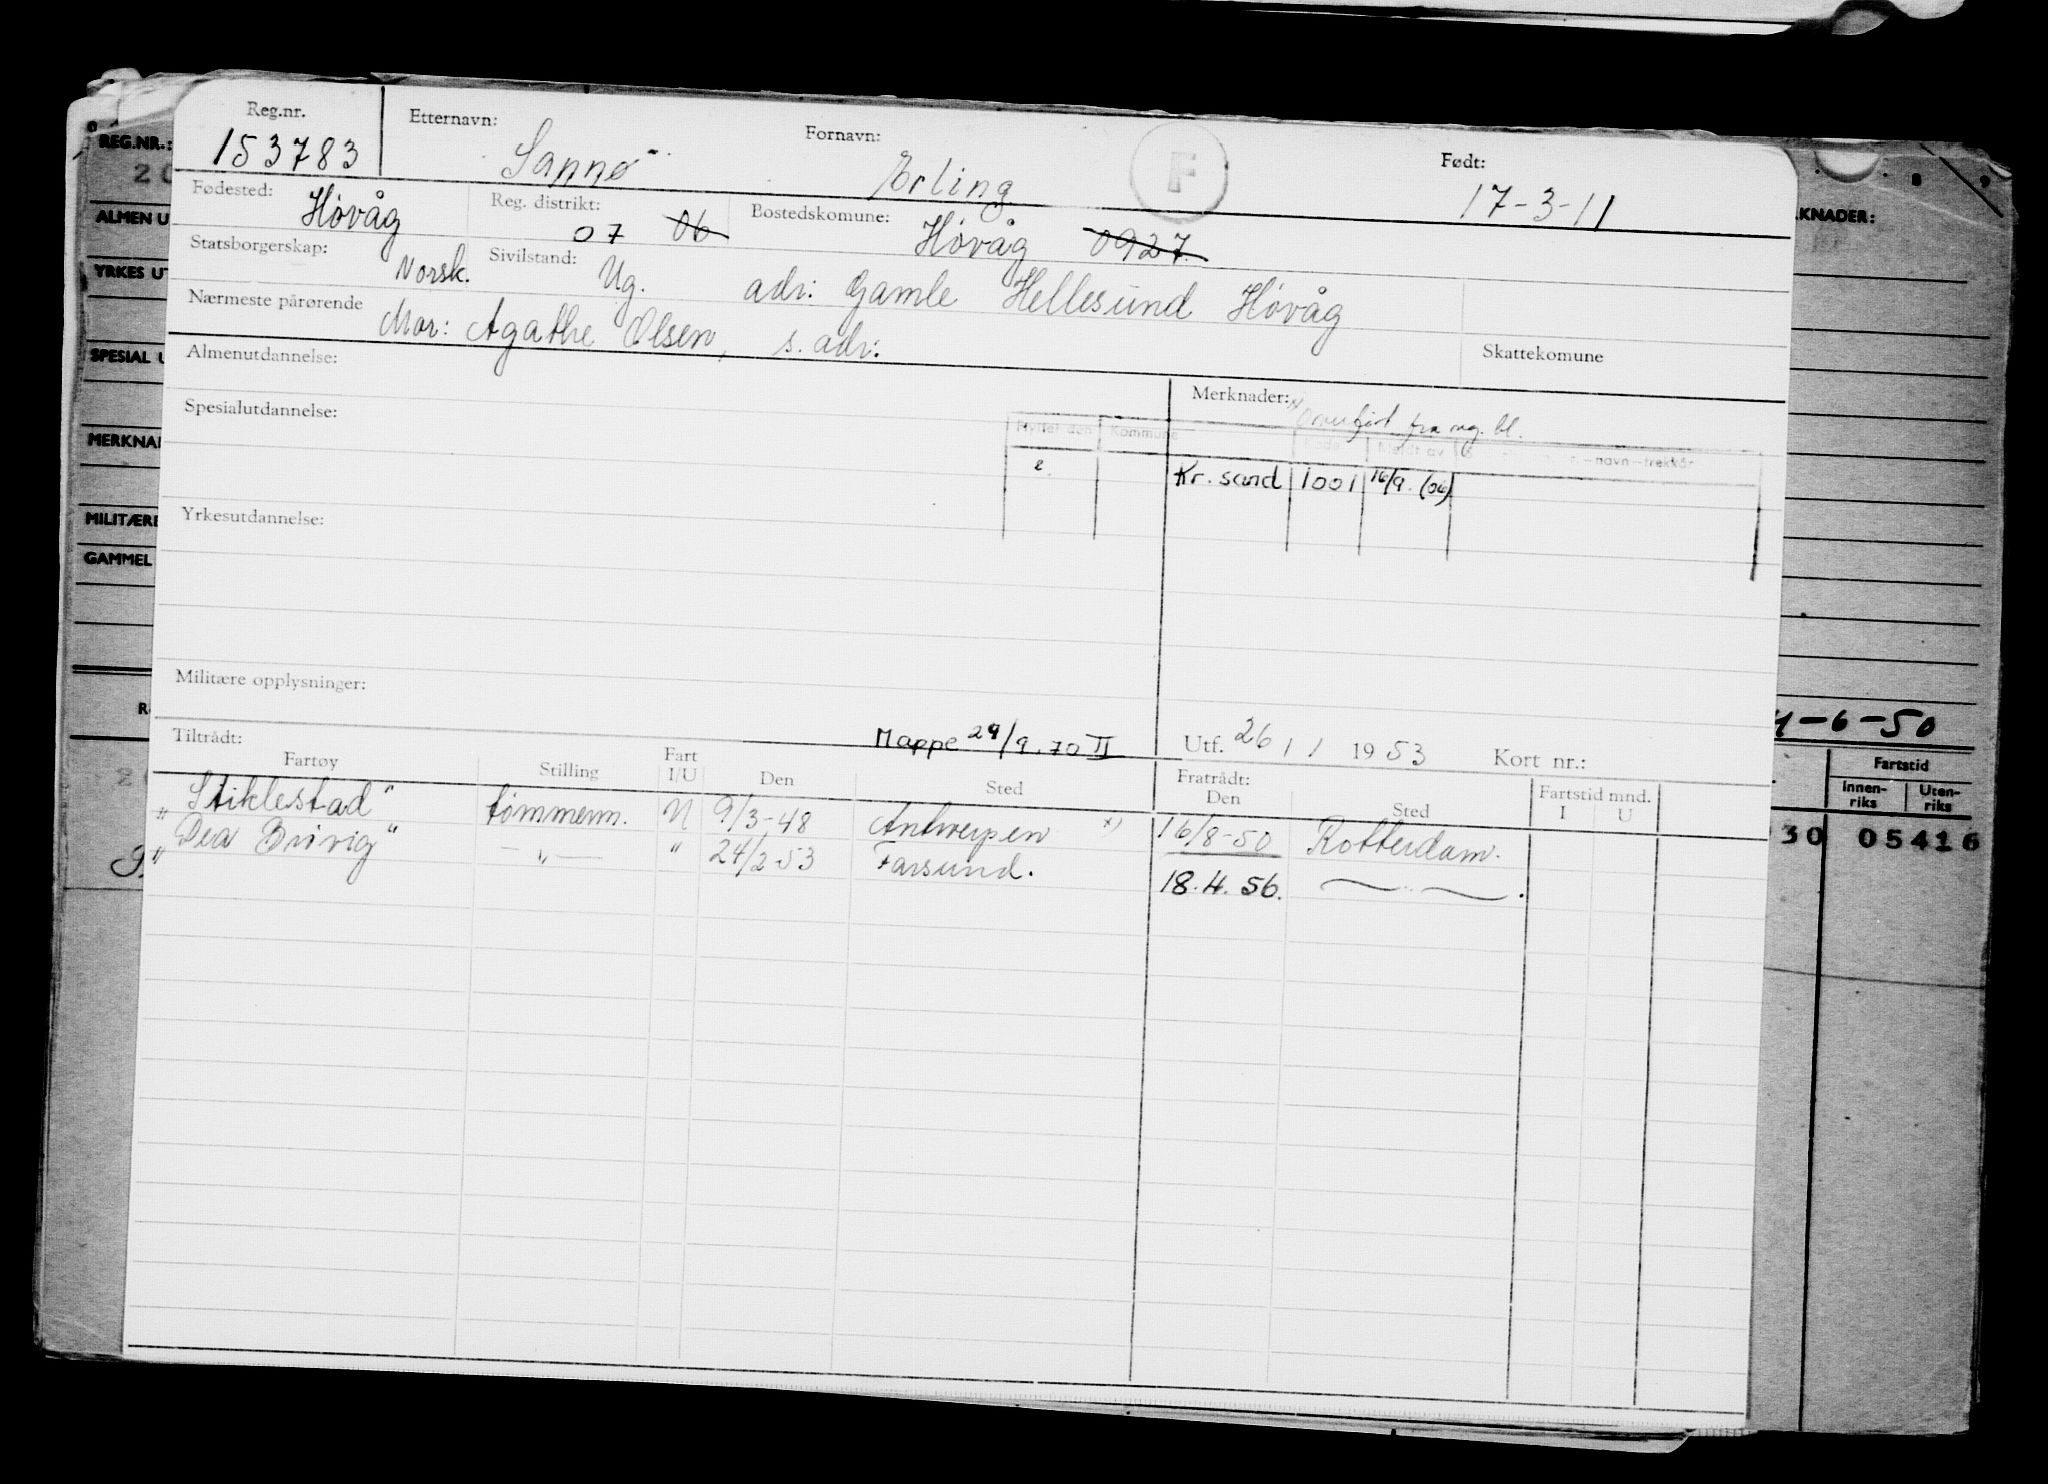 Reg.nr. Etternavn: Fornavn: F Født:
153783 Sannø Erling 17-3-11
Fødested: Høvåg Reg. distrikt: 07 06 Bostedskomune: Høvåg 0927
Statsborgerskap: Norsk. Sivilstand: Ug. adr: Gamle Hellesund Høvåg
Nærmeste pårørende Mor: Agathe Olsen, s. adr.
Skattekomune
Almenutdannelse:
Merknader: x) Overført fra reg. bl.
Spesialutdannelse:
Flyttet den Kommune Kode Meldt av -navn-trekkår
2. Kr. sand 1001 16/9. (06)
Yrkesutdannelse:
Militære opplysninger:
Tiltrådt: Mappe 29/9.70 II Utf. 26/1 1953 Kort nr.:
Fartøy Stilling Fart I/U Den Sted Fratrådt: Den Sted Fartstid mnd. I U
"Stiklestad" tømmerm. U 9/3-48 Antwerpen x) 16/8-50 Rotterdam.
"Dea Brøvig" — „ — " 24/2-53 Farsund. 18.4.56. — „ — .
REG.NR.:
20
ALMEN U
YRKES UT
SPESIAL U
MERKNA
MILITÆRE
GAMMEL
R
8 9
KNADER:
-6-50
Fartstid
Innen-riks Uten-riks
30 05416